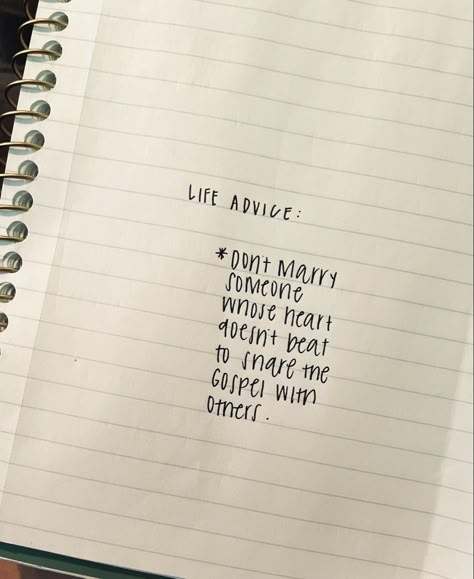 LIFE ADVICE:
*DON't MARRY
SOMEONE
whose heart
doesn't beat
to share the
GOSPEL WITH
OTHERS.